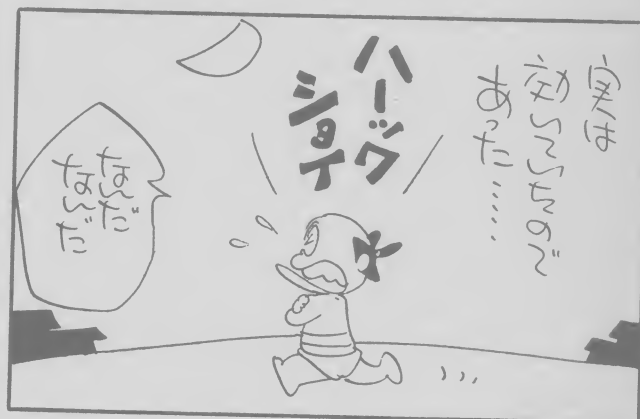 実は
効いていたので
あった……
ハーック
ショイ
なんだ
なんだ